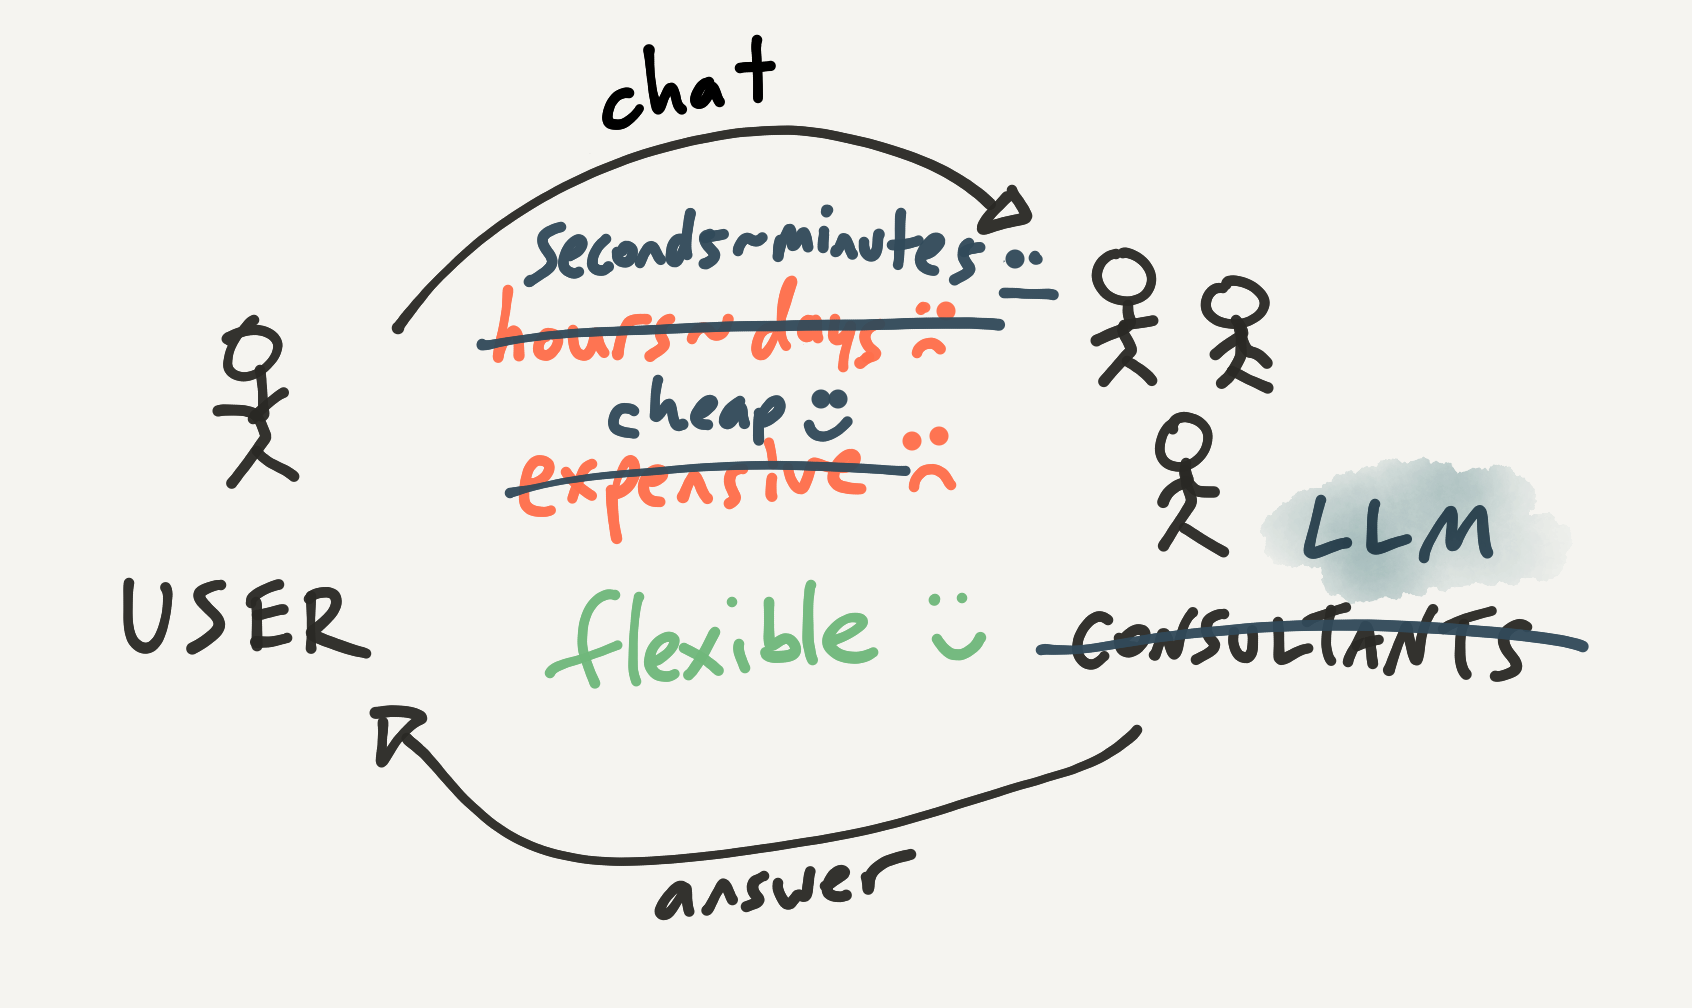 chat
seconds~minutes
hours~days
cheap
expensive
LLM
USER
flexible
CONSULTANTS
answer